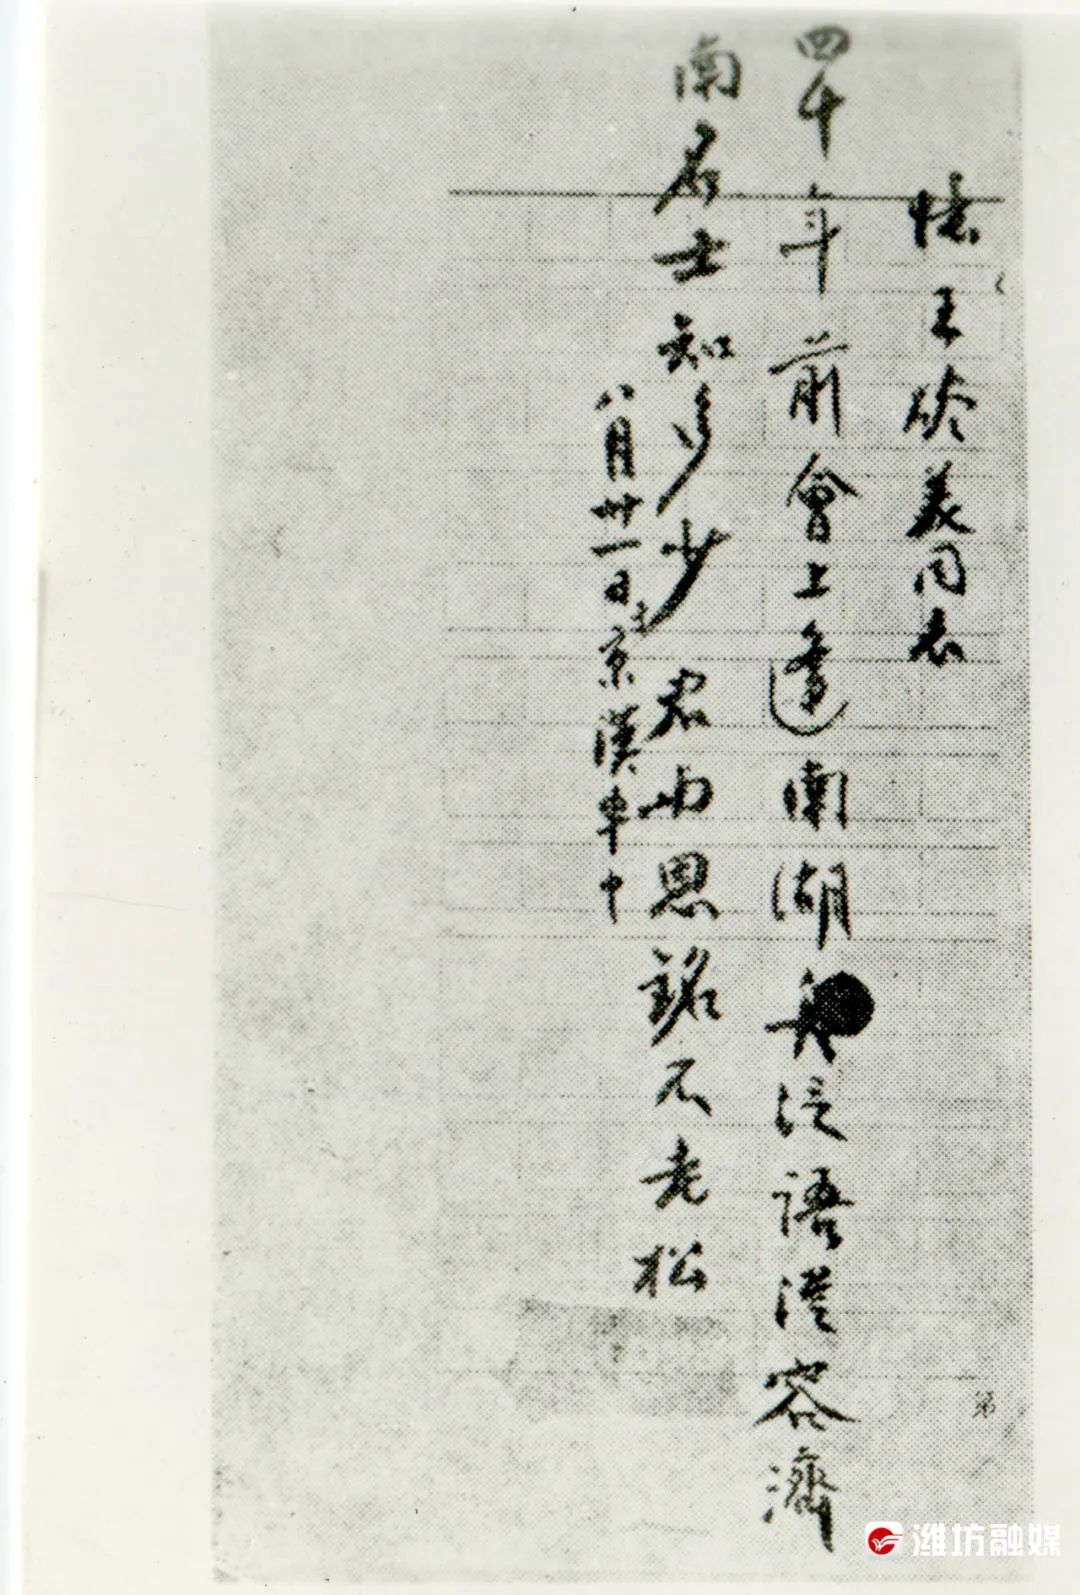 忆王烬美同志
四十年前會上逢南湖舟泛語從容濟
南名士知多少君与恩銘不老松
八月廿一日去京漢車中
第
潍坊融媒